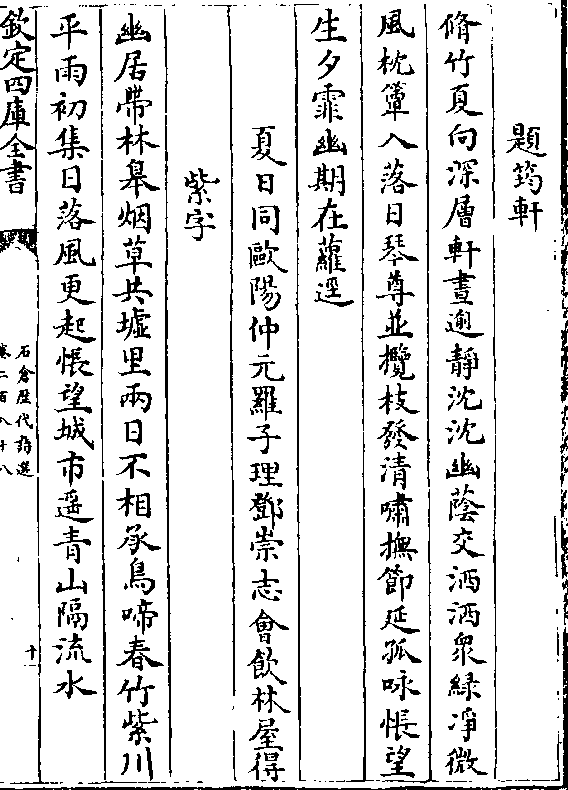 題筠軒
脩竹夏向深層軒晝逈靜沈沈幽蔭交洒洒衆緑凈微
風枕簟入落日琴尊並攬枝發清嘯撫節延孤咏悵望
生夕霏幽期在蘿逕
夏日同歐陽仲元羅子理鄧崇志會飲林屋得
紫字
幽居帶林皋烟草共墟里兩日不相承鳥啼春竹紫川
平雨初集日落風更起悵望城市遥青山隔流水
欽定四庫全書
石倉歴代詩選
卷二百八十八
十一